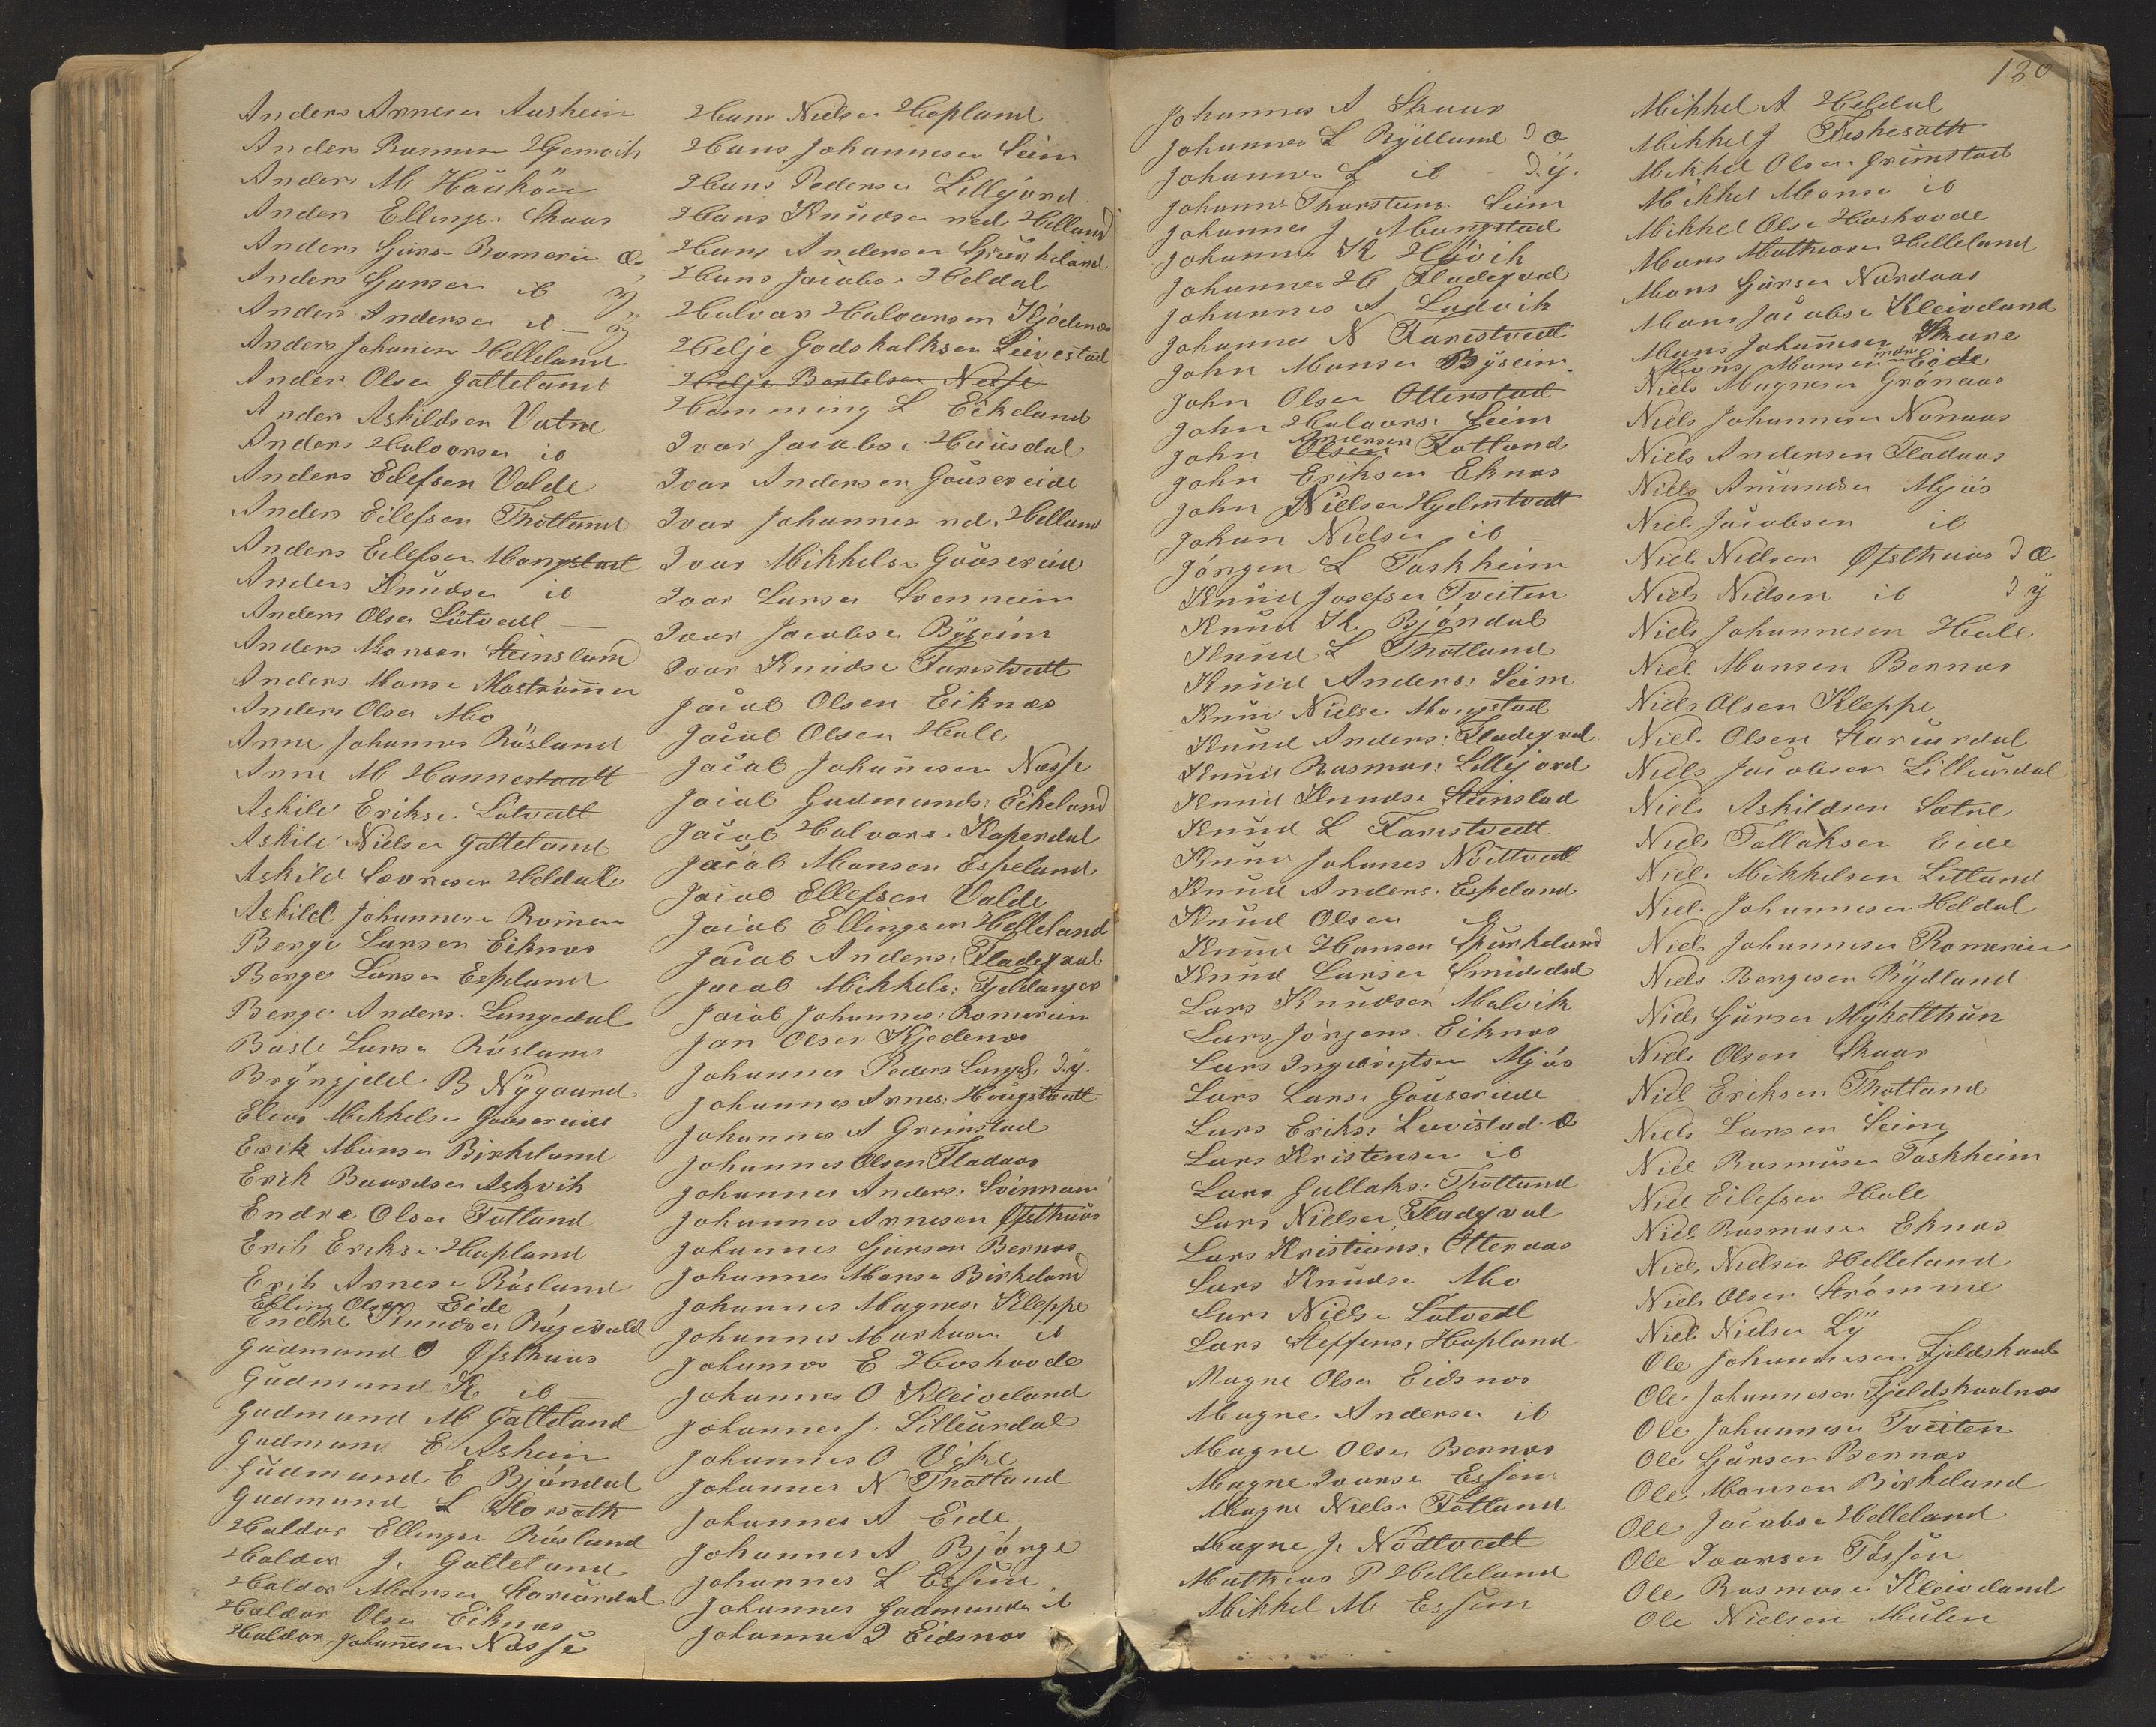 Anders Arnesen Ausheim
Anders Rasmusen Hjemvik
Anders M Haukøen
Anders Ellings: Skaar
Anders Gjørse Romerein Æ
Anders Gjørsen ib y
Anders Andersen ib – y
Anders Johannsen Helleland
Anders Olsen Gatteland
Anders Askildsen Vatne
Anders Halvorsen ib
Anders Edlefsen Valde
Anders Eilefsen Thotland
Anders Eilefsen Mangstad
Anders Knudsen ib
Anders Olsen Løtvedt –
Anders Monsen Steinsland
Anders Monse Mostrømmen
Anders Olsen Mo
Arne Johannes Røsland
Arne M Hannestvedt
Askild Erikse Løtvedt
Askild Nielsen Gatteland
Askild Sævresen Heldal
Askild Johannese Romerein
Berge Larsen Eiknæs
Berge Larsen Espeland
Berge Anders: Langedal
Børle Larsen Røsland
Brÿngjeld B Nÿgaard
Elias Mikkelse Gaasereide
Erik Monsen Birkeland
Erik Baardsen Askvik
Endre Olsen Totland
Erik Erikse Hopland
Erik Arnese Røsland
Elling Olsen Eide
Endre Knudsen Røgevold
Gudmund O Øfsthuus
Gudmund K ib –
Gudmund M Gatteland
Gudmund E Asheim
Gudmund E Bjøndal
Gudmund L Storsæth
Haldor Ellingse Røsland
Haldor J. Gatteland
Haldor Monsen Storeurdal
Haldor Olsen Eiknæs
Haldor Johannesen Næsse
Hans Nielsen Hopland
Hans Johannesen Seim
Hans Pedersen Lillejord
Hans Knudsen ned Helland
Hans Andersen Spurkeland
Hans Jacobse Heldal
Halvor Halvorsen Kjedenæs
Helje Godskalksen Leivestad
Helje Bertelsen Nesse
Hemming L Eikeland
Ivar Jacobse Hausdal
Ivar Andersen Gausereide
Ivar Johannes nd. Helland
Ivar Mikkelse Gaasereide
Ivar Larsen Svenneim
Ivar Jacobse Bÿseim
Ivar Knudse Tarestvedt
Jacob Olsen Eiknæs
Jacob Olsen Hole
Jacob Johannesen Næsse
Jacob Gudmunds: Eikeland
Jacob Halvorse Koperdal
Jacob Monsen Espeland
Jacob Ellefsen Valde
Jacob Ellingsen Helleland
Jacob Anders: Fladeqval
Jacob Mikkels: Fjeldanger
Jacob Johannes: Romerein
Jan Olsen Kjedenæs
Johannes Peders Langd: D.ÿ.
Johannes Arnes: Haugstvedt
Johannes A Grimstad
Johannes Olsen Fladaas
Johannes Anders: Svinnam
Johannes Arnesen Øfsthuus
Johannes Gjørsen Bernæs
Johannes Monse Birkeland
Johannes Magnes: Kleppe
Johannes Markusen ib
Johannes E Hoshovde
Johannes O Kleiveland
Johannes J. Lilleurdal
Johannes O Vike
Johannes N Thotland
Johannes A Eide
Johannes A Bjørge
Johannes L Essem
Johannes Gudmunds ib
Johannes I Eidsnes
Johannes A Skaar
Johannes L Rÿdland D Æ
Johannes L ib D.ÿ.
Johannes Thorstens: Seim
Johannes J Mangstad
Johannes K Høvik
Johannes H Fladeqval
Johannes A Ladvik
Johannes N Tarestvedt
John Monsen Bÿseim
John Olsen Otterstad
John Halvors: Seim
Andersen
John Olsen Totland
John Eriksen Eknæs
John Nielsen Hjelmtvedt
Johan Nielsen ib –
Jørgen L Taskheim
Knud Josefsen Tveiten
Knud K Bjøndal
Knud L Thotland
Knud Anders: Seim
Knud Nielse Mangstad
Knud Anders: Fladeqval
Knud Rasmus: Lillejord
Knud Knudse Steinsland
Knud L Tarestvedt
Knud Johanes Nøttvedt
Knud Anders: Espeland
Knud Olsen ib
Knud Hansen Spurkeland
Knud Larsen Smidsdal
Lars Knudsen Malvik
Lars Jørgens: Eiknæs
Lars Ingebrigtsen Mjøs
Lars Larse Gausereide
Lars Eriks: Leivistad Æ
Lars Kristensen ib
Lars Gullaks: Thotland
Lars Nielsen Fladeqval
Lars Kristians: Otteraas
Lars Knudse Mo
Lars Nielse Løtvedt
Lars Steffens: Hopland
Magne Olsen Eidsnæs
Magne Andersen ib
Magne Olsen Bernæs
Magne Ivarse Essem
Magne Nielse Totland
Magne J. Nødtvedt
Mathias P Helleland
Mikkel M Essem
130
Mikkel A Heldal
Mikkel J Fiskesæth
Mikkel Olsen Grimstad
Mikkel Monse ib
Mikkel Olse Hoshovde
Mons Mathiasen Helleland
Mons Gjørsen Nordaas
Mons Jacobse Kleiveland
Mons Johannesen Skare
Mons Monsen indr Eide
Niels Magnesen Grønaas
Niels Johannesen Nonaas
Niels Andersen Fladaas
Niels Amundsen Mjøs
Niels Jacobsen ib
Niels Nielsen Øfsthuus D Æ
Niels Nielsen ib D ÿ
Niels Johannesen Hole
Niels Monsen Bernæs
Niels Olsen Kleppe
Niels Olsen Storeurdal
Niels Jacobsen Lilleurdal
Niels Askildsen Sætre
Niels Tollaksen Eide
Niels Mikkelsen Litland
Niels Johannesen Heldal
Niels Johannesen Romerein
Niels Bergesen Rÿdland
Niels Gjørsen Mÿkelthun
Niels Olsen Skaar
Niels Eriksen Thotland
Niels Larsen Seim
Niels Rasmusen Taskheim
Niels Eilefsen Hole
Niels Rasmusen Eknæs
Niels Nielsen Helleland
Niels Olsen Strømme
Niels Nielsen Lÿ
Ole Johannesen Fjeldskaal
Ole Johannesen Fjeldskaalnæs
Ole Johannesen Tveiten
Ole Gjørsen Bernæs
Ole Monsen Birkeland
Ole Jacobse Helleland
Ole Ivarsen Tøssen
Ole Rasmuse Kleiveland
Ole Nielsen Mulen